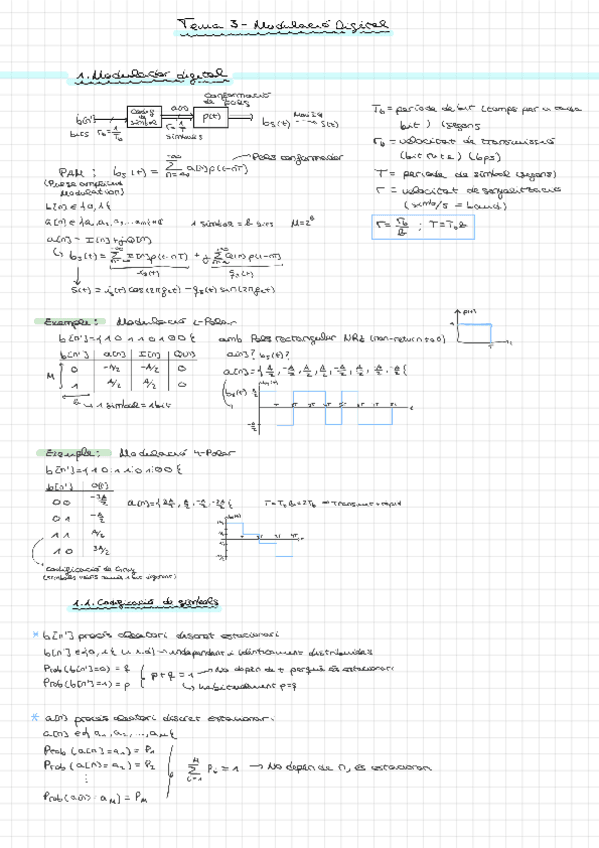 Tema 3 - Modulació Digital
1. Modulador digital
Conformació de POLS
b[n'] Codif. de símbol a[n] p(t) b_s(t) Mod IQ s(t)
bits r_b = 1/T_b r = 1/T símbols
T_b = període de bit (temps per a cada
bit) (segons)
r_b = velocitat de transmissió
(bit rate) (bps)
T = període de símbol (segons)
r = velocitat de senyalització
(símb/s = baud)
r = r_b/b ; T = T_b b
PAM : b_s(t) = Σ a[n] p(t-nT) Pols conformador
(Pulse amplitude
Modulation)
b[n] ∈ {0,1}
1 símbol = b bits M = 2^b
a[n] = I[n] + jQ[n]
b_s(t) = Σ I[n] p(t-nT) + j Σ Q[n] p(t-nT)
i_s(t) q_s(t)
s(t) = i_s(t) cos(2πf_c t) - q_s(t) sin(2πf_c t)
Exemple: Modulació 2-Polar
b[n'] = {1 0 1 1 0 1 0 0} amb Pols rectangular NRZ (non-return to 0)
b[n'] a[n] I[n] Q[n] a[n]? b_s(t)?
0 -A/2 -A/2 0
1 A/2 A/2 0
M
b 1 símbol = 1 bit
a[n] = {A/2, -A/2, A/2, A/2, -A/2, A/2, -A/2, -A/2}
Exemple: Modulació 4-Polar
b[n'] = {1 0 1 1 0 1 0 0}
b[n'] a[n]
00 -3A/2
01 -A/2
11 A/2
10 3A/2
a[n] = {3A/2, A/2, -A/2, -3A/2} T = T_b b = 2T_b
codificació de Gray
1.1. Codificació de símbols
* b[n'] procés aleatori discret estacionari
b[n'] ∈ {0,1} i.i.d → independent i idènticament distribuïdes
Prob(b[n']=0) = q
Prob(b[n']=1) = p
p+q = 1 → No depèn de t perquè és estacionari
habitualment p=q
* a[n] procés aleatori discret estacionari
a[n] ∈ {a_1, a_2, ..., a_M}
Prob(a[n]=a_1) = P_1
Prob(a[n]=a_2) = P_2
⋮
Prob(a[n]=a_M) = P_M
Σ P_i = 1 → No depèn de n, és estacionari